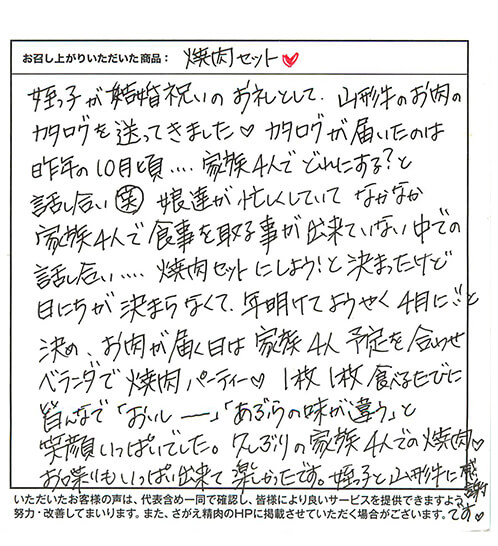 お召し上がりいただいた商品： 焼肉セット♥
姪っ子が結婚祝いのお礼として、山形牛のお肉の
カタログを送ってきました♡カタログが届いたのは
昨年の10月頃‥‥家族4人でどれにする？と
話し合い㊙笑 娘達が忙しくしていてなかなか
家族4人で食事を取る事が出来ていない中での
話し合い‥‥焼肉セットにしよう！と決まったけど
日にちが決まらなくて、年明けてようやく4月にと
決め、お肉が届く日は家族4人予定を合わせ
ベランダで焼肉パーティー♡1枚1枚食べるたびに
皆んなで「おいしー」「あぶらの味が違う」と
笑顔いっぱいでした。久しぶりの家族4人での焼肉♡
お喋りもいっぱい出来て楽しかったです。姪っ子と山形牛に感謝
です♡
いただいたお客様の声は、代表含め一同で確認し、皆様により良いサービスを提供できますよう、
努力・改善してまいります。また、さがえ精肉のHPに掲載させていただく場合がございます。